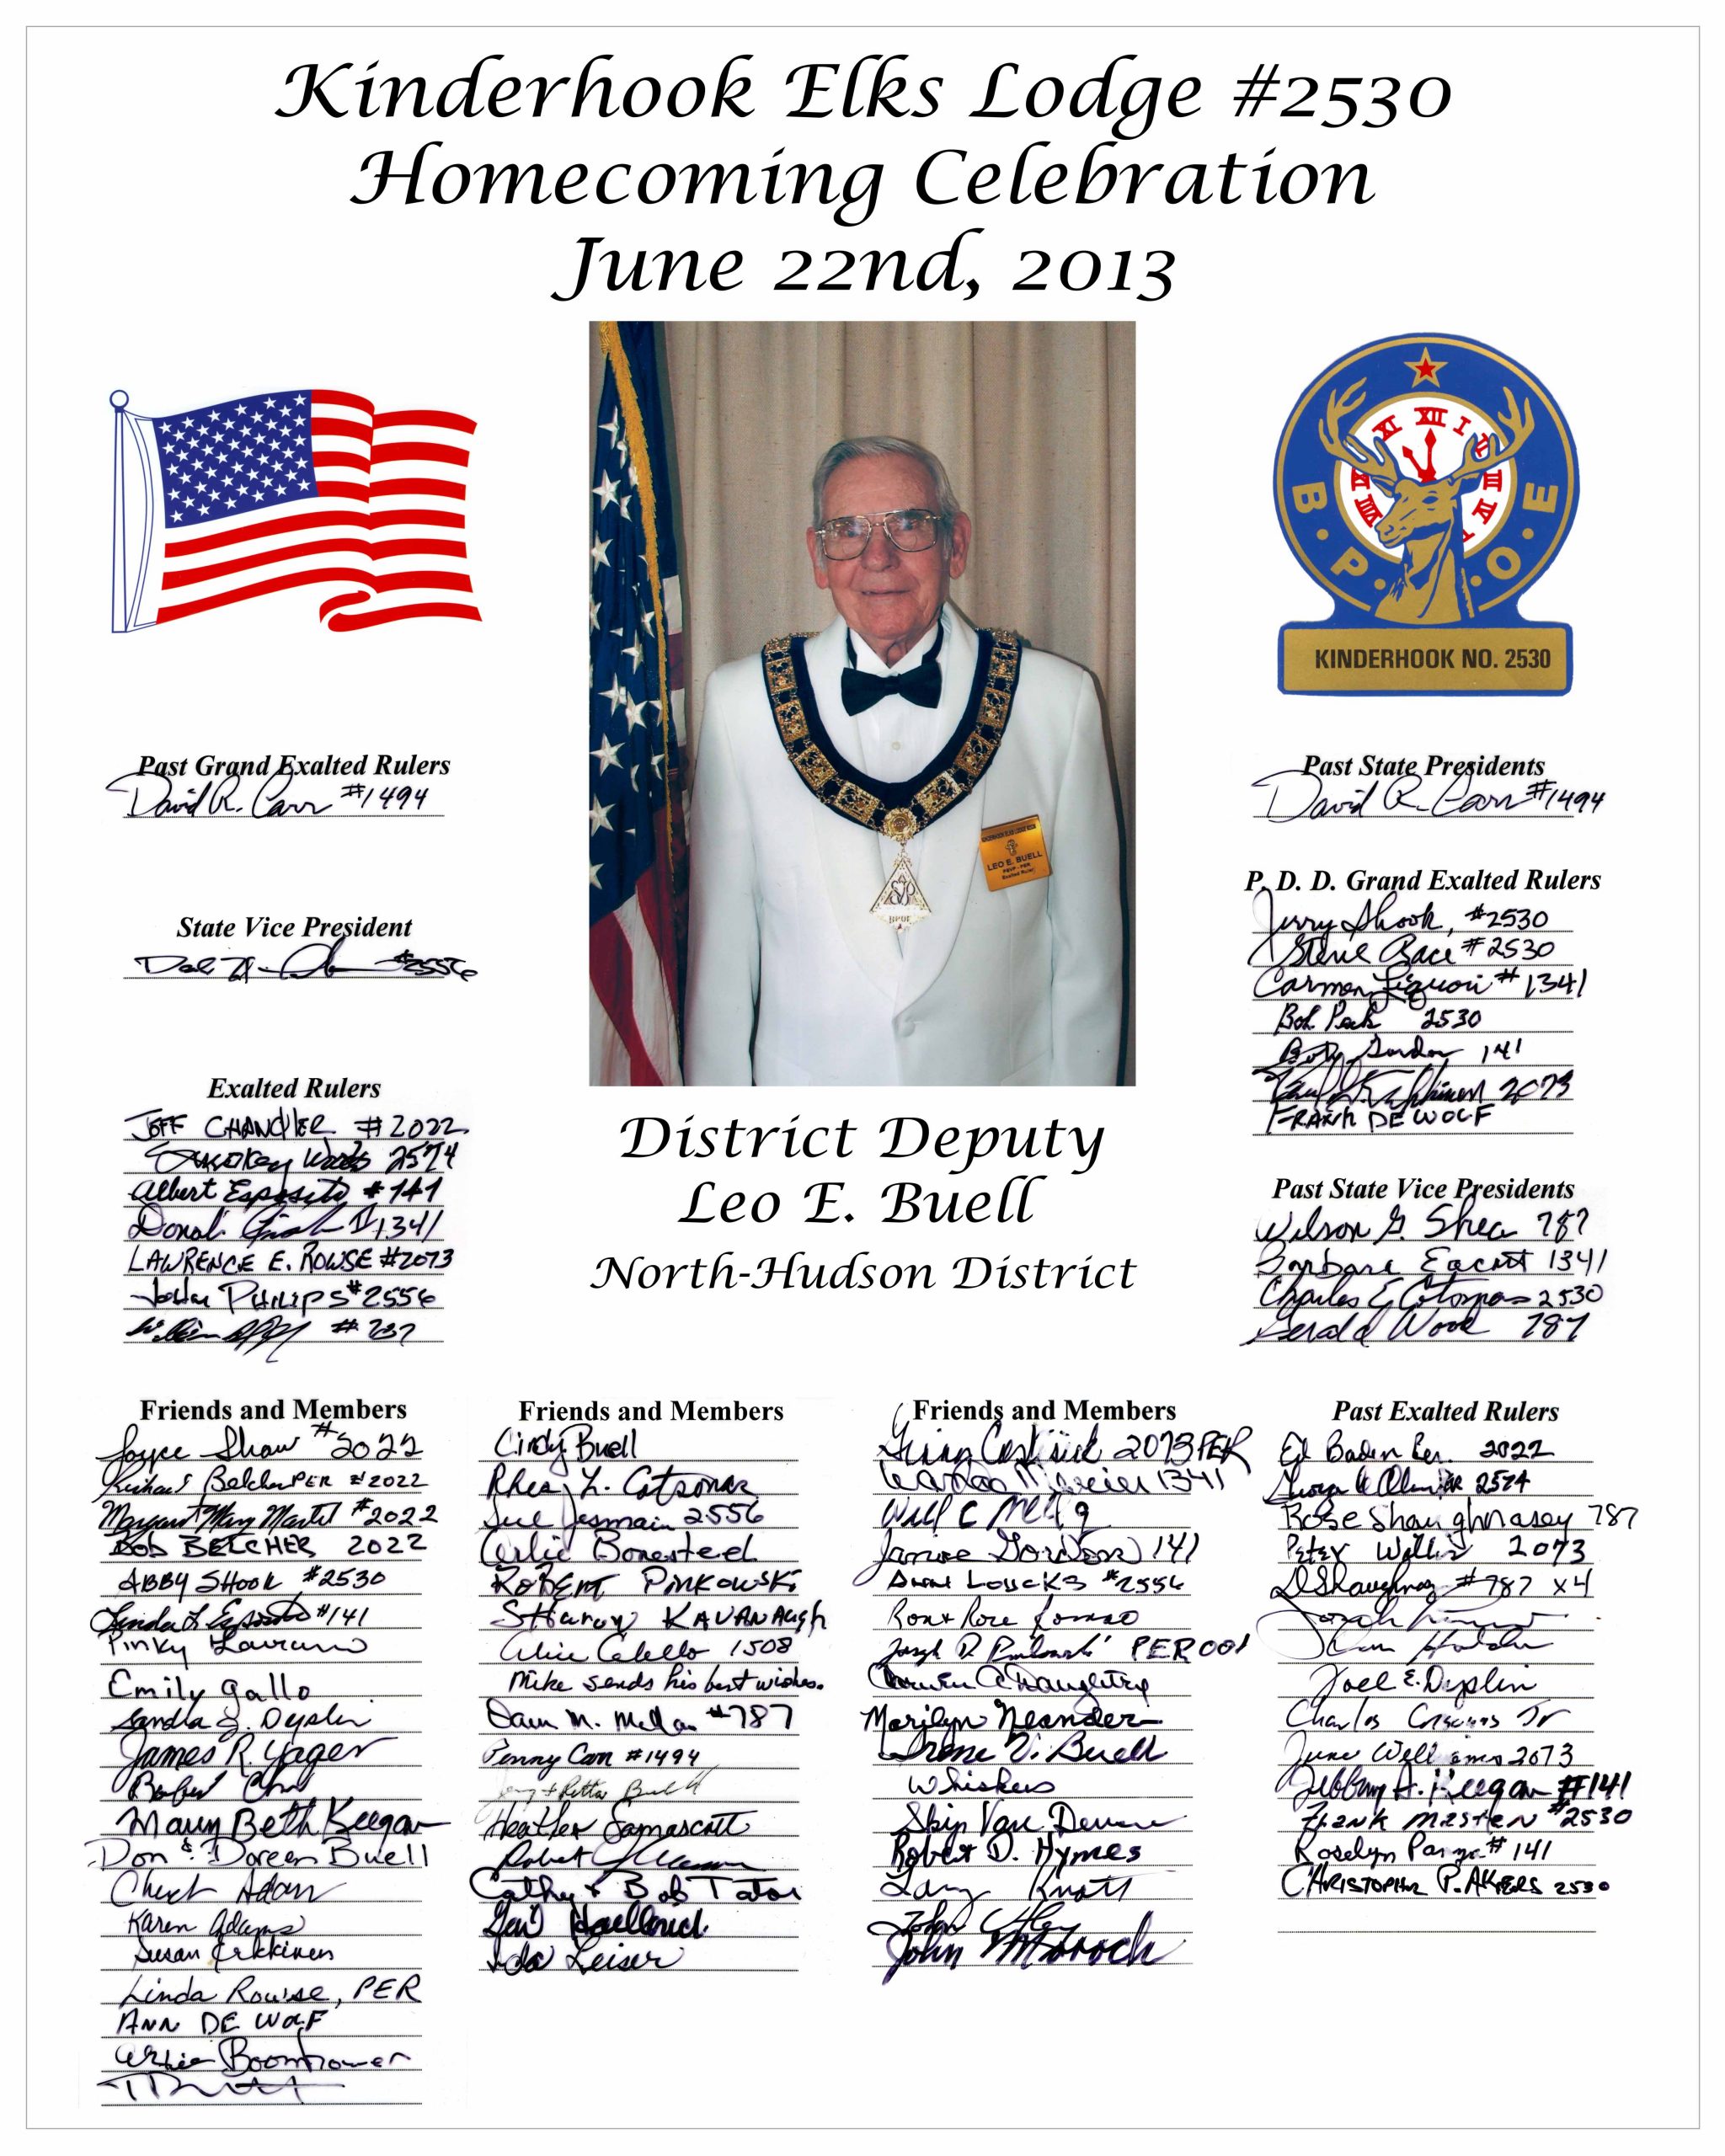 Kinderhook Elks Lodge #2530
Homecoming Celebration
June 22nd, 2013
XI XII I II III IV V VIII
B·P·O·E
KINDERHOOK NO. 2530
KINDERHOOK ELKS LODGE #2530
LEO E. BUELL
PSVP - PER
Exalted Ruler
BPOE
Past Grand Exalted Rulers
David R. Carr #1494
State Vice President
#2556
Exalted Rulers
JEFF CHANDLER #2022
Woods 2574
Albert Esposito #141
Donal 1341
LAWRENCE E. ROWSE #2073
PHILIPS #2556
William #787
Past State Presidents
David R. Carr #1494
P. D. D. Grand Exalted Rulers
Jerry Shook, #2530
Steve Race #2530
Carmen Liguori #1341
Bob Peck 2530
Gordon 141
2073
FRANK DE WOLF
Past State Vice Presidents
Wilson G. Shea 787
Barbara Eacott 1341
Charles E Cotsonas 2530
Gerald Wood 787
District Deputy
Leo E. Buell
North-Hudson District
Friends and Members
Joyce Shaw #2022
Richard Belcher PER #2022
Margaret Mary Martel #2022
BOB BELCHER 2022
ABBY SHOOK #2530
Linda L Esposito #141
Pinky Laurano
Emily Gallo
Sandra J. Dyslin
James R. Yager
Robert
Mary Beth Keegan
Don & Doreen Buell
Chuck Adams
Karen Adams
Susan Erkkinen
Linda Rowse, PER
ANN DE WOLF
Boomhower
Friends and Members
Cindy Buell
Rhea L. Cotsonas
Sue Jesmain 2556
Arlie Bonesteel
ROBERT PINKOWSKI
Sharon KAVANAUGH
Alice Colello 1508
Mike sends his best wishes.
#787
Penny Carr #1494
Buell
Heather Samascott
Robert
Cathy & Bob Tator
Ida Leiser
Friends and Members
2073 PER
Mercier 1341
Will C
Janice Gordon 141
LOUCKS #2556
Ron & Rose
Joseph PER
Daughtry
Marilyn Neander
Irene V. Buell
Whiskers
Skip Van
Robert D. Hymes
Larry Knott
John
John
Past Exalted Rulers
Ed Baden 2022
2574
Rose Shaughnassey 787
Peter Willis 2073
#787 x4
Joel E. Dyslin
Charles Jr
June Williams 2073
Keegan #141
Frank Masten #2530
Roselyn #141
CHRISTOPHER P. AKERS 2530